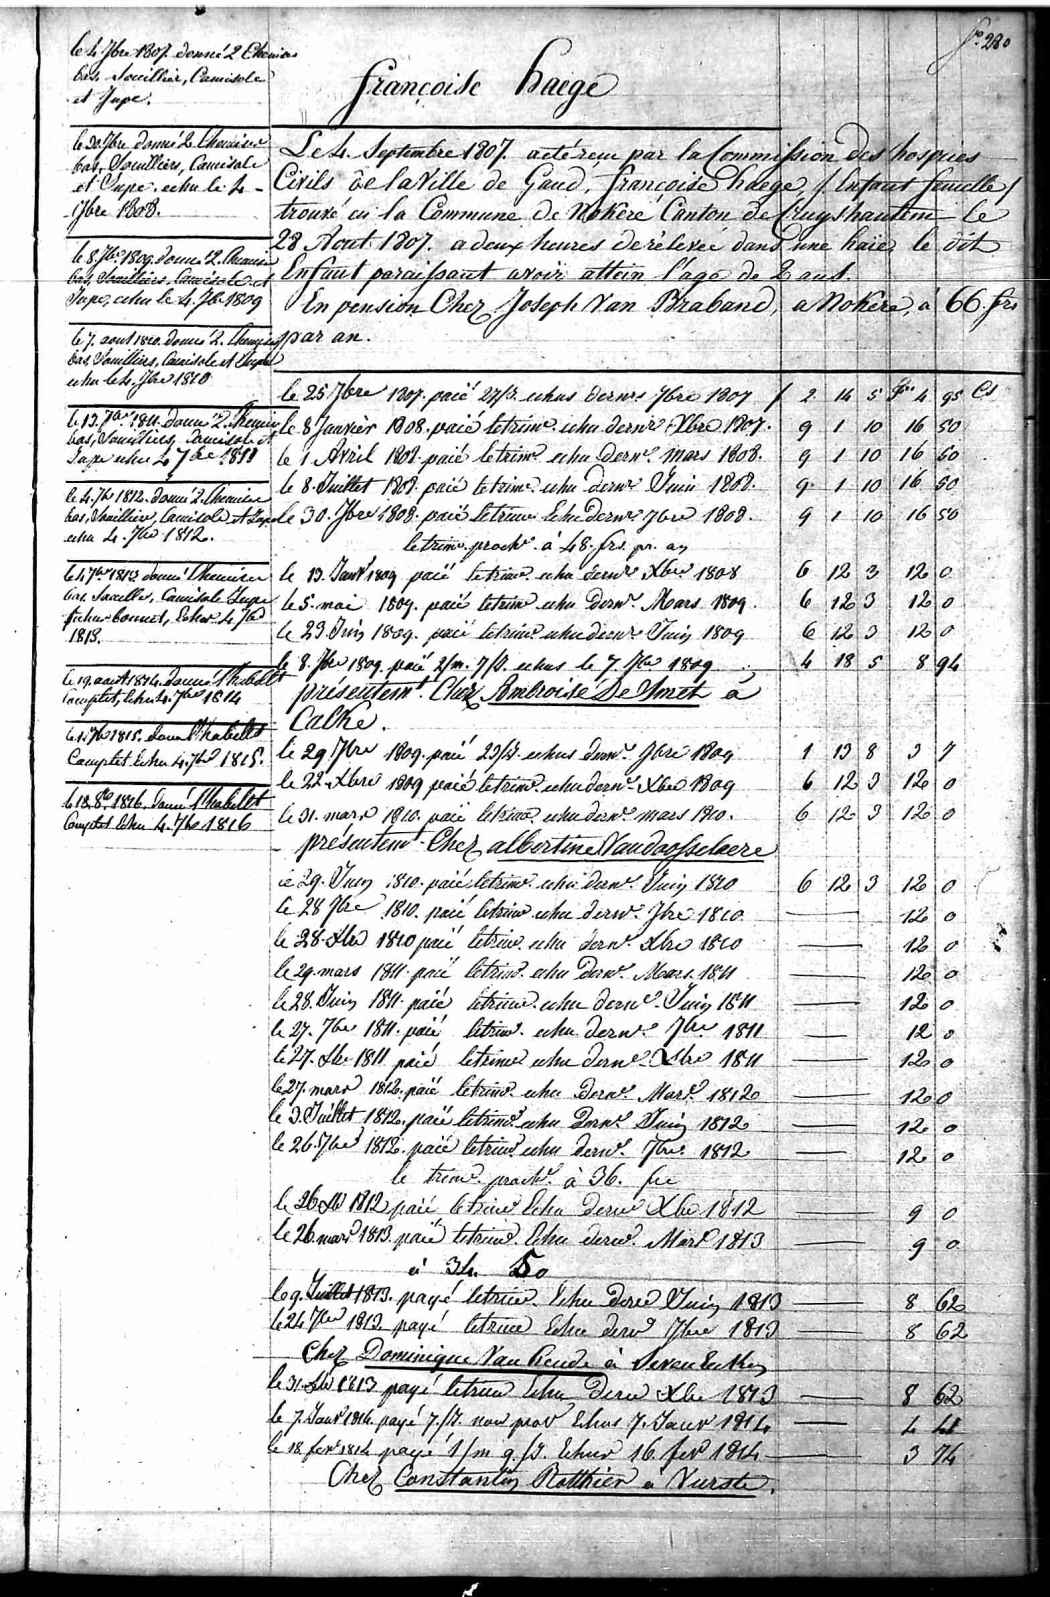 fo. 280
le 4 7bre 1807 donné 2 Chemises
bas, Soulliers, Camisole
et Jupe.
le 30 7bre donné 2 Chemises
bas, Soulliers, Camisole
et Jupe. echu le 4
7bre 1808.
le 8 7bre 1809 donné 2 Chemises
bas, Soulliers, Camisole et
Jupe, echu le 4 7bre 1809
le 7. aout 1810. donné 2. Chemises
bas, Soulliers, Camisole et Jupe
echu le 4. 7bre 1810
le 13. 7bre 1811. donné 2. Chemises
bas, Soulliers, Camisole et
Jupe echu 4 7bre 1811
le 4. 7b 1812. donné 2 Chemises
bas, Soulliers, Camisole et Jupe
echu 4. 7bre 1812.
le 4 7bre 1813 donné Chemise
bas Soullie, Camisole Jupe
fichu bonnet, Echu 4 7bre
1813.
le 19. aout 1814. donné l'habillt
Complet, Echu 4. 7bre 1814
le 7b 1815. donné l'habillt
Complet Echu 4. 7bre 1815.
le 18. 8b 1816. donné l'habillt
Complet Echu 4. 7bre 1816
françoise haege
Le 4. Septembre 1807. a été reçu par la Commission des hospices
Civils de la Ville de Gand, françoise haege, / Enfant femelle /
trouvé en la Commune de Nokere Canton de Cruyshautem le
28 Aout 1807. a deux heures de rélevée dans une haie, le dit
Enfant paraissant avoir attein l'age de 2 ans.
En pension Chez Joseph Van Braband, a Nokere, à 66. frs
par an.
le 25 7bre 1807. paié 27/J. echus dernrs 7bre 1807 / 2 14 5 frs 4 95 Cs
le 8 Janvier 1808. paié le trim. echu dernr Xbre 1807. 9 1 10 16 50
le 1 Avril 1808. paié le trimr. echu dernr. mars 1808. 9 1 10 16 50
le 8. Juillet 1808. paié le trimr. echu dernr Juin 1808. 9 1 10 16 50
le 30. 7bre 1808. paié le trimr Echu dernr 7bre 1808. 9 1 10 16 50
le trimr. prochr. à 48. frs. pr. an
le 13. Janvr 1809 paié le trimr. echu dernr. Xbre 1808 6 12 3 12 0
le 5. mai 1809. paié le trimr. echu dernr. Mars 1809. 6 12 3 12 0
le 23 Juin 1809. paié le trimr. echu dernr. Juin 1809 6 12 3 12 0
le 8. 7bre 1809. paié 2/m. 7/J. echus le 7. 7bre 1809 4 18 5 8 94
présentemt. Chez Ambroise De Smet à
Calke.
le 29 7bre 1809. paié 23/J. echus dernr. 7bre 1809 1 13 8 3 7
le 22 Xbre 1809 paié le trimr. echu dernr. Xbre 1809 6 12 3 12 0
le 31. mars 1810. paié le trimr. echu dernr. mars 1810. 6 12 3 12 0
présentemt. Chez albertine Vandoosselaere
le 29. Juin 1810. paié le trimr. echu dernr. Juin 1810 6 12 3 12 0
le 28 7bre 1810. paié le trimr echu dernr. 7bre 1810 12 0
le 28. Xbre 1810 paié le trimr. echu dernr. Xbre 1810 12 0
le 29. mars 1811. paié le trimr. echu dernr. Mars. 1811 12 0
le 28. Juin 1811. paié le trimr. echu dernr. Juin 1811 12 0
le 27. 7bre 1811. paié le trimr. echu dernr. 7bre 1811 12 0
le 27. Xbr 1811 paié le trimr echu dernr. Xbre 1811 12 0
le 27. mars 1812. paié le trimr. echu dernr. Mars. 1812 12 0
le 3. Juillet 1812. paié le trimr. echu dernr. Juin 1812 12 0
le 26. 7bre 1812. paié le trimr echu dernr. 7bre 1812 12 0
le trimr. prochr. à 36. frs
le 26 Xb 1812 paié le trimr. Echu dernr Xbre 1812 9 0
le 26. mars 1813. paié le trimr. Echu dernr. Mars 1813 9 0
à 34. 50
le 9. Juillet 1813. payé le trimr. Echu dernr Juin 1813 8 62
le 24 7bre 1813 payé le trimr Echu dernr 7bre 1813 8 62
Chez Dominique Van à
le 31. Xbr 1813 payé le trimr Echu dernr Xbre 1813 8 62
le 7. Janvr 1814. payé 7./J. Echus 7. Janvr 1814
le 18. fevr. 1814 payé 1/m 9./J. Echus 16. fevr 1814 3 74
Chez Constantin Rotthier a Vurste.